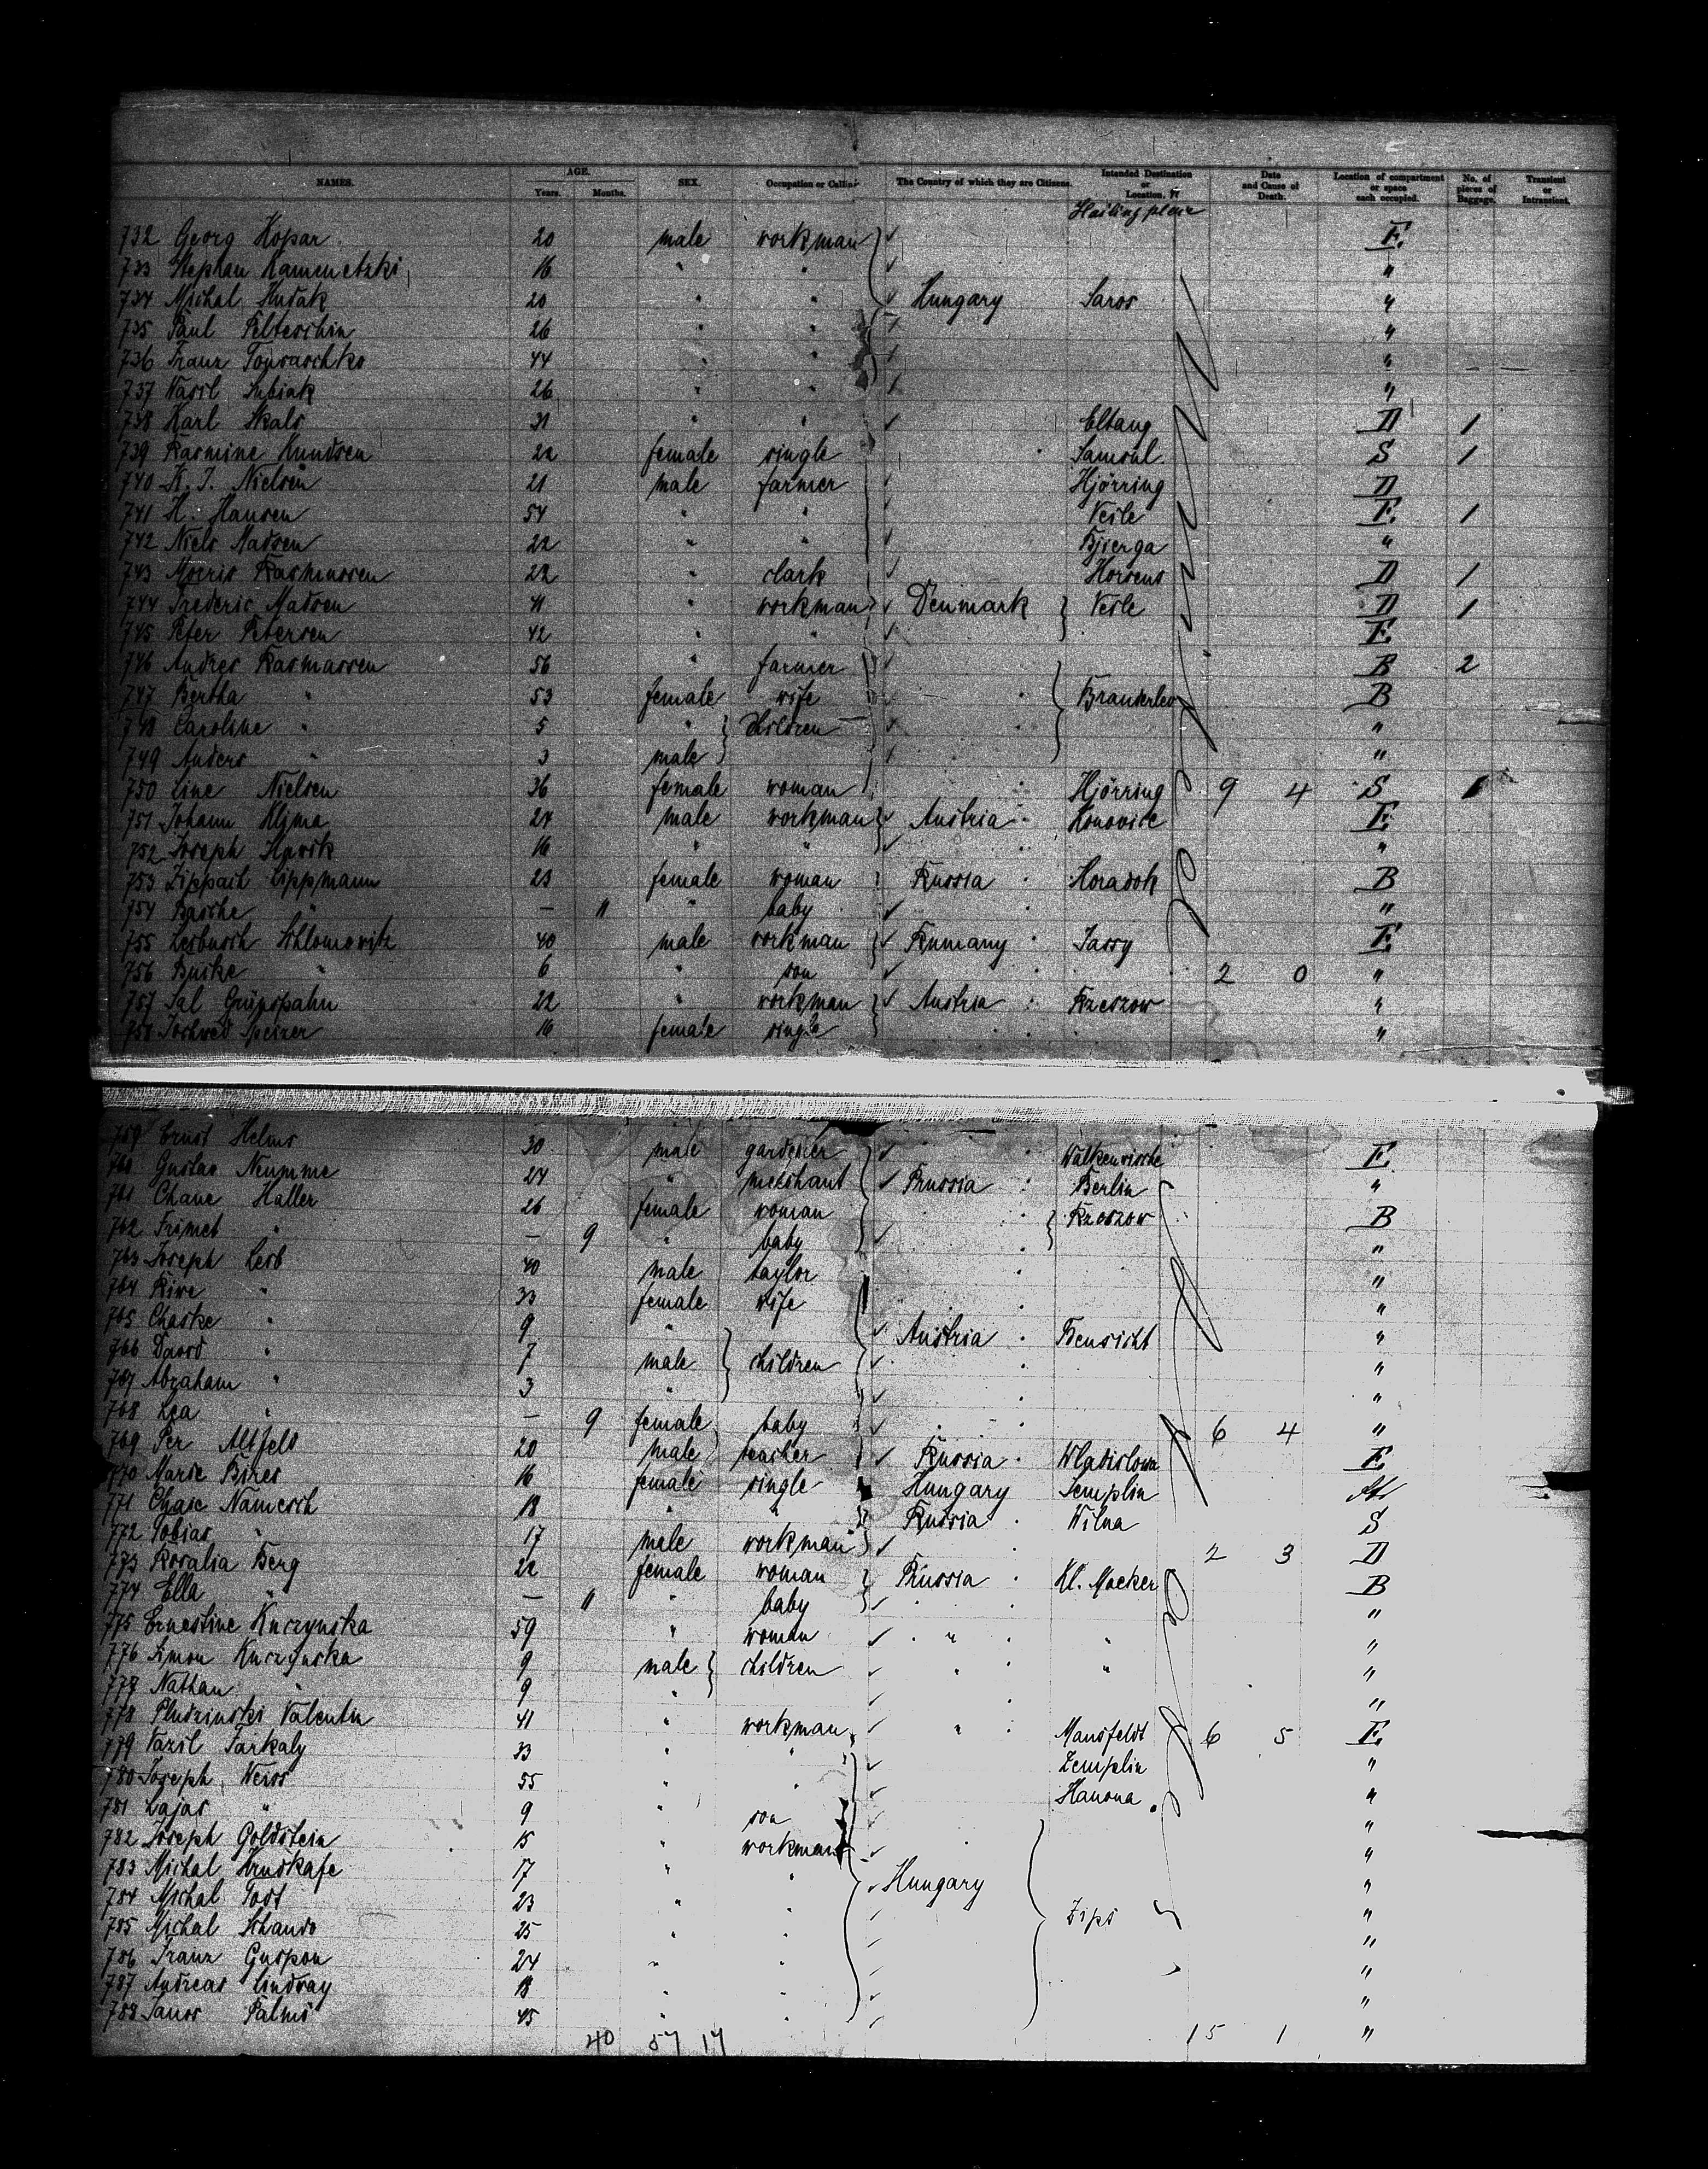 NAMES. AGE. Years. Months. SEX. Occupation or Calling The Country of which they are Citizens. Intended Destination or Location. Date and Cause of Death. Location of compartment or space each occupied. No. of pieces of Baggage. Transient or Intransient.
Hailing place
732 Georg Kopar 20 male workman E.
733 Stephan Kamenetzki 16 " " "
734 Michal Hudak 20 " " Hungary Saros "
735 Paul 26 " " "
736 Franz 44 " " "
737 Vasil 26 " " "
738 Karl Skals 31 " " Eltang D 1
739 Rasmine Knudsen 22 female single " D S 1
740 K. J. Nielsen 21 male farmer Hjörring D
741 H. Hansen 54 " " Veile E. 1
742 Niels Madsen 22 " " Bjerga "
743 Morris Rasmussen 22 " clark Horsens D 1
744 Frederic Madsen 41 " workman Denmark Veile D 1
745 Peter Petersen 42 " " E.
746 Andres Rasmassen 56 " farmer B 2
747 Bertha " 53 female wife " B
748 Caroline " 5 " Children "
749 Anders " 3 male "
750 Line Nielsen 36 female woman " Hjörring 9 4 S 1
751 Johann Klima 24 male workman Austria Konovice E.
752 Joseph 16 " " " "
753 Lippmann 23 female woman Russia Horadok B
754 Basche " — 11 " baby "
755 Leibusch Schlomovitz 40 male workman Rumany Jassy E.
756 " 6 " son " 2 0 "
757 Sal Grünspahn 22 " workman Austria Rzeszow "
758 Speizer 16 female single " "
759 Ernst Helms 30 male gardener E.
760 Gustav Neumme 24 " merchant Prussia Berlin "
761 Chane Haller 26 female woman " Rzeszow B
762 Frimet " — 9 " baby " "
763 Joseph Leib 40 male taylor " "
764 Rive " 33 female wife " "
765 Chaske " 9 " Austria "
766 David " 7 male children " "
767 Abraham " 3 " " "
768 Lea " — 9 female baby " 6 4 "
769 Per Altfeld 20 male teacher Russia E
770 Marie Bires 16 female single Hungary Semplin
771 Chaie Namesch 18 " " Russia Wilna S
772 Tobias " 17 male workman " 2 3 D
773 Rosalia Berg 22 female woman Prussia Kl. Mocker B
774 Ella " — 11 " baby " "
775 Ernestine Kuczynska 59 " woman " " "
776 Simon Kuczynska 9 male children " " "
777 Nathan " 9 " " "
778 Pludzinski Valentin 41 " workman " Mansfeldt 6 5 E.
779 Vazil Tarkaly 33 " " Zemplin "
780 Joseph Weiss 55 " " Hanona "
781 Lajas " 9 " son "
782 Joseph Goldstein 15 " workman "
783 Michal 17 " " Hungary "
784 Michal Todt 23 " " Zips "
785 Michal Schando 25 " " "
786 Franz Guspon 24 " " "
787 Andreas Lindvay 18 " " "
788 Palmi 45 " " "
40 57 17 15 1